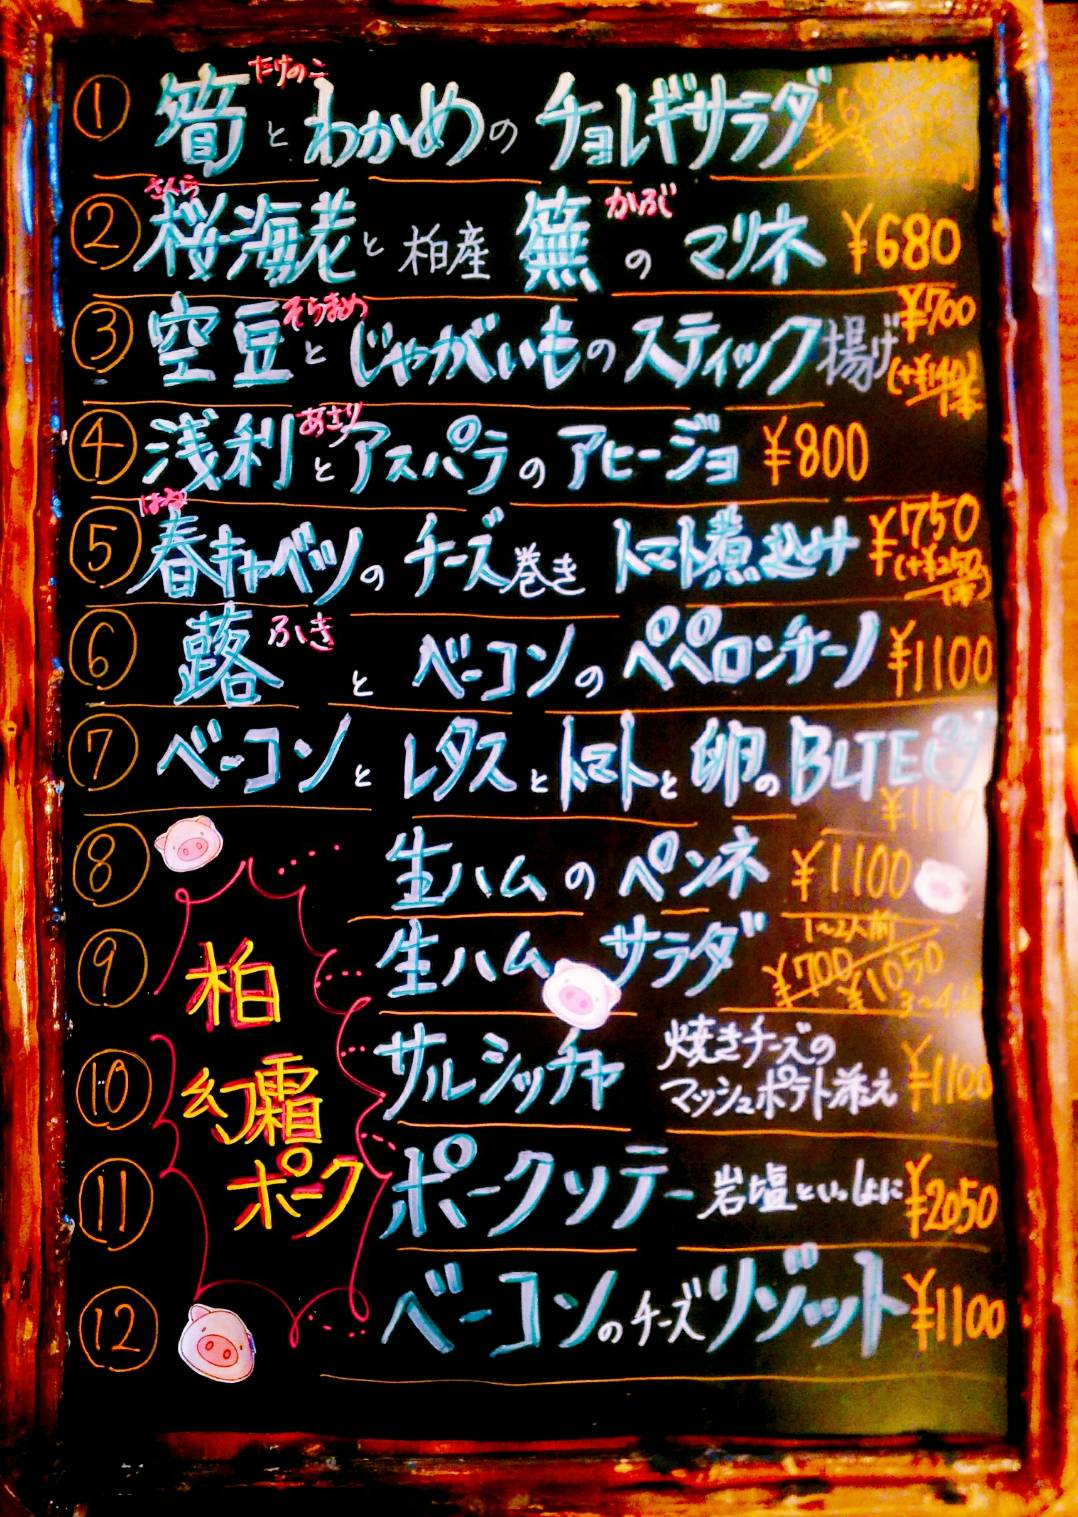 ① 筍 たけのこ と わかめ の チョレギサラダ
② 桜海老 さくら と 柏産 蕪 かぶ の マリネ ¥680
③ 空豆 そらまめ と じゃがいも の スティック 揚げ ¥700
④ 浅利 あさり と アスパラ の アヒージョ ¥800
⑤ 春キャベツ はる の チーズ巻き トマト煮込み ¥750
⑥ 蕗 ふき と ベーコン の ペペロンチーノ ¥1100
⑦ ベーコン と レタス と トマト と 卵 の BLTE ¥1100
⑧ 生ハム の ペンネ ¥1100
⑨ 生ハム サラダ 1~2人前 ¥700 ¥1050
柏
幻霜
ポーク
⑩ サルシッチャ 焼きチーズの マッシュポテト添え ¥1100
⑪ ポークソテー 岩塩といっしょに ¥2050
⑫ ベーコン の チーズ リゾット ¥1100